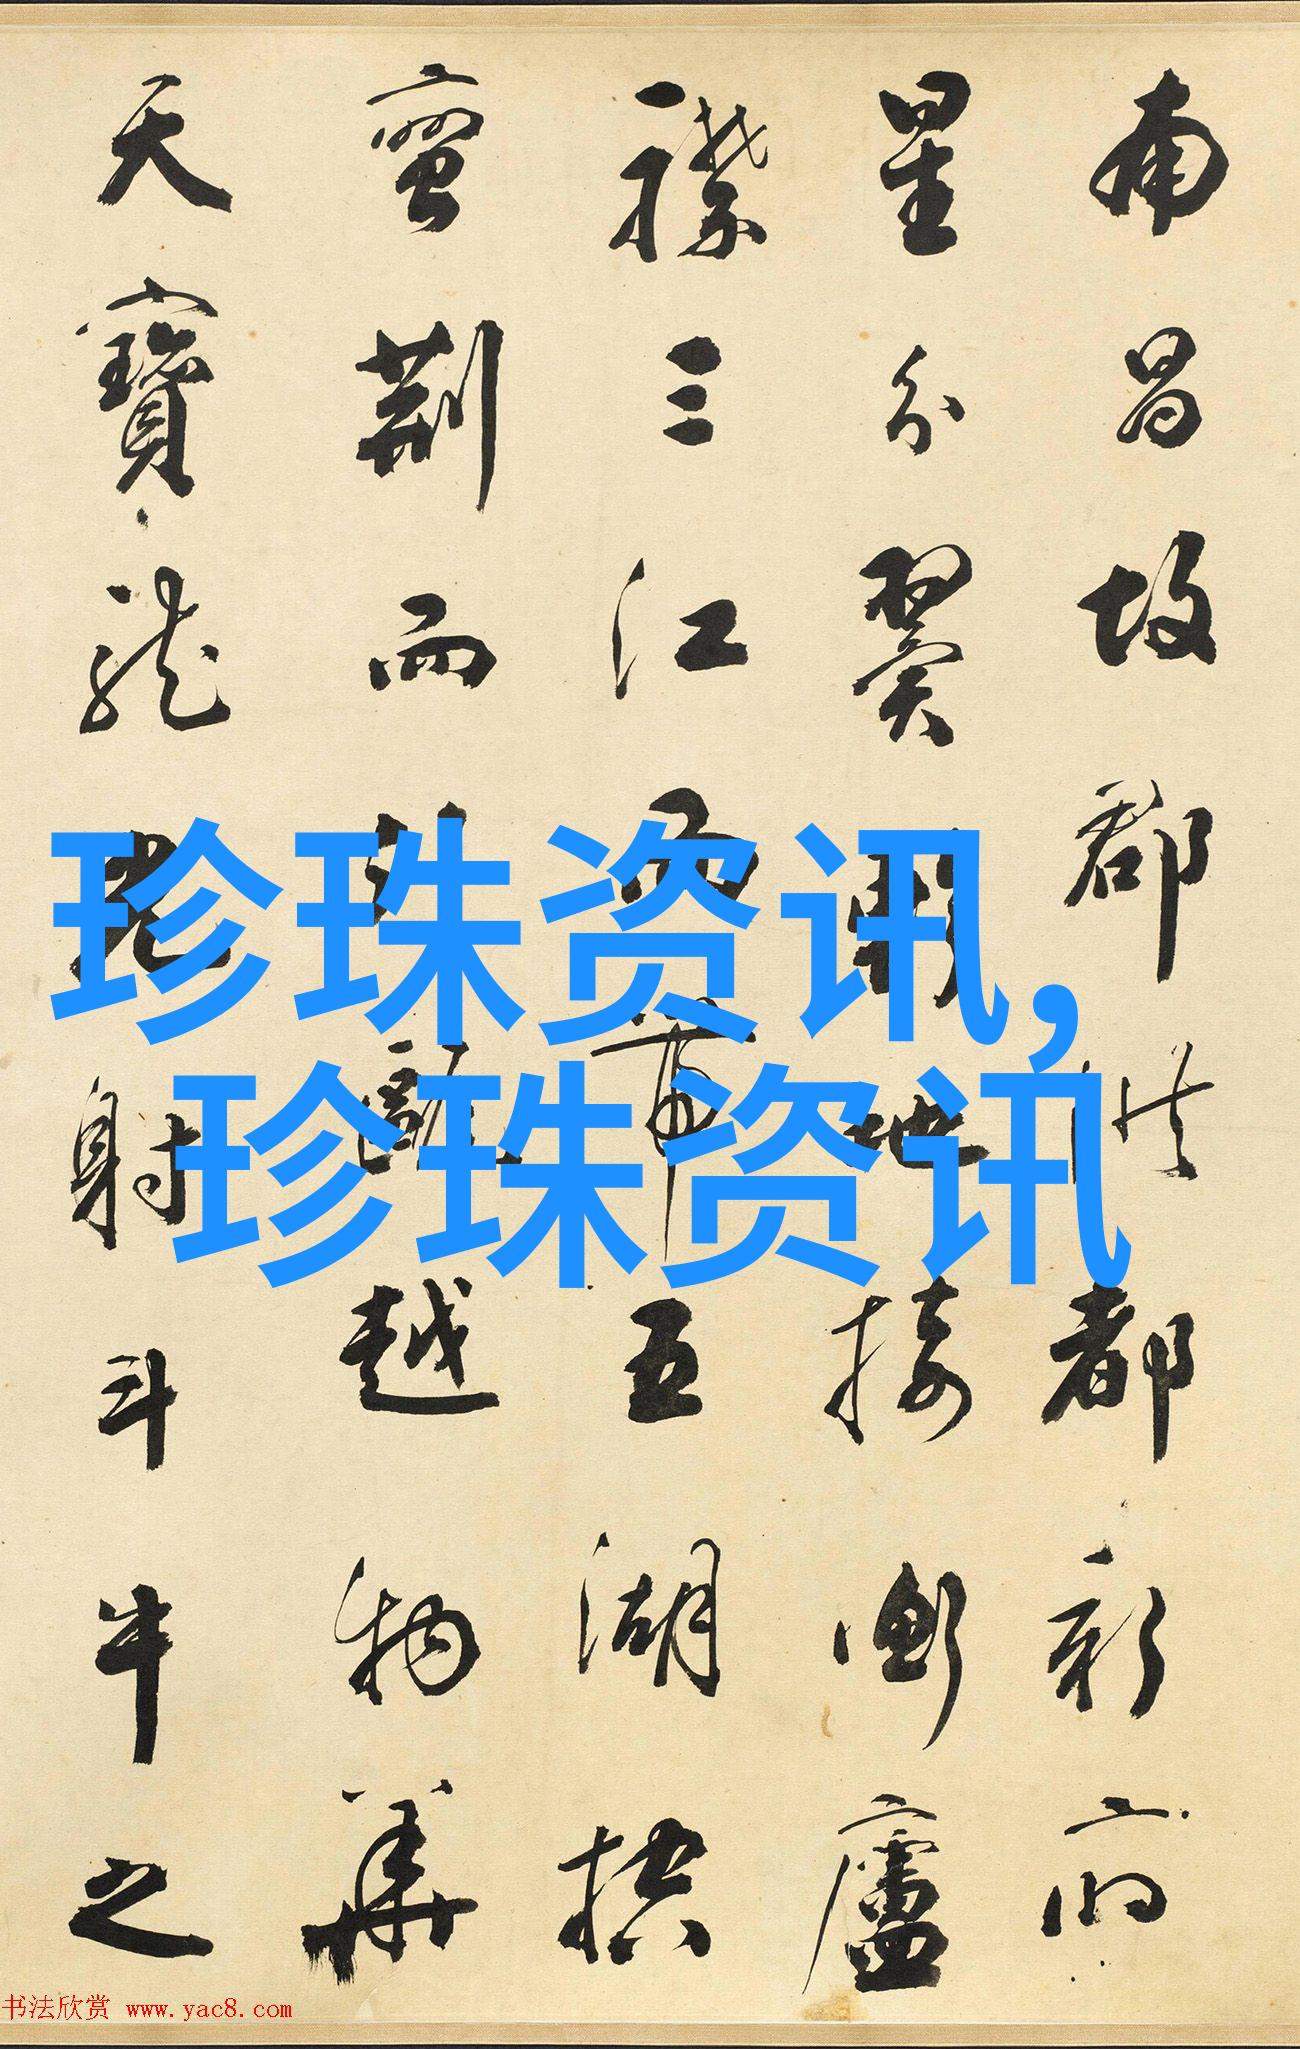 南昌故郡洪都新府
星分翼軫地接衡廬
襟三江而帶五湖控
蠻荆而甌越物華
天寶龍光射斗牛之
珍珠资讯,
珍珠资讯
书法欣赏 www.yac8.com